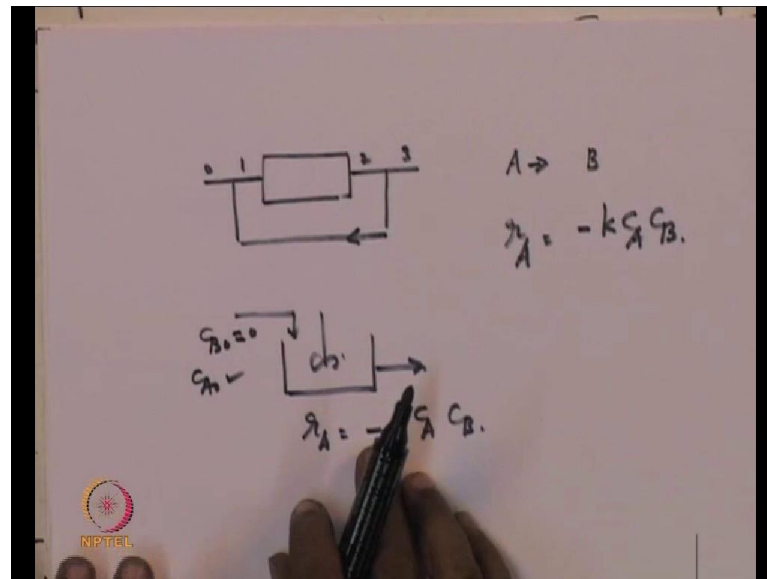 0 1 2 3
A → B
r_A = - k C_A C_B.
C_B0 = 0
C_A0 ✓
r_A = - C_A C_B.
NPTEL